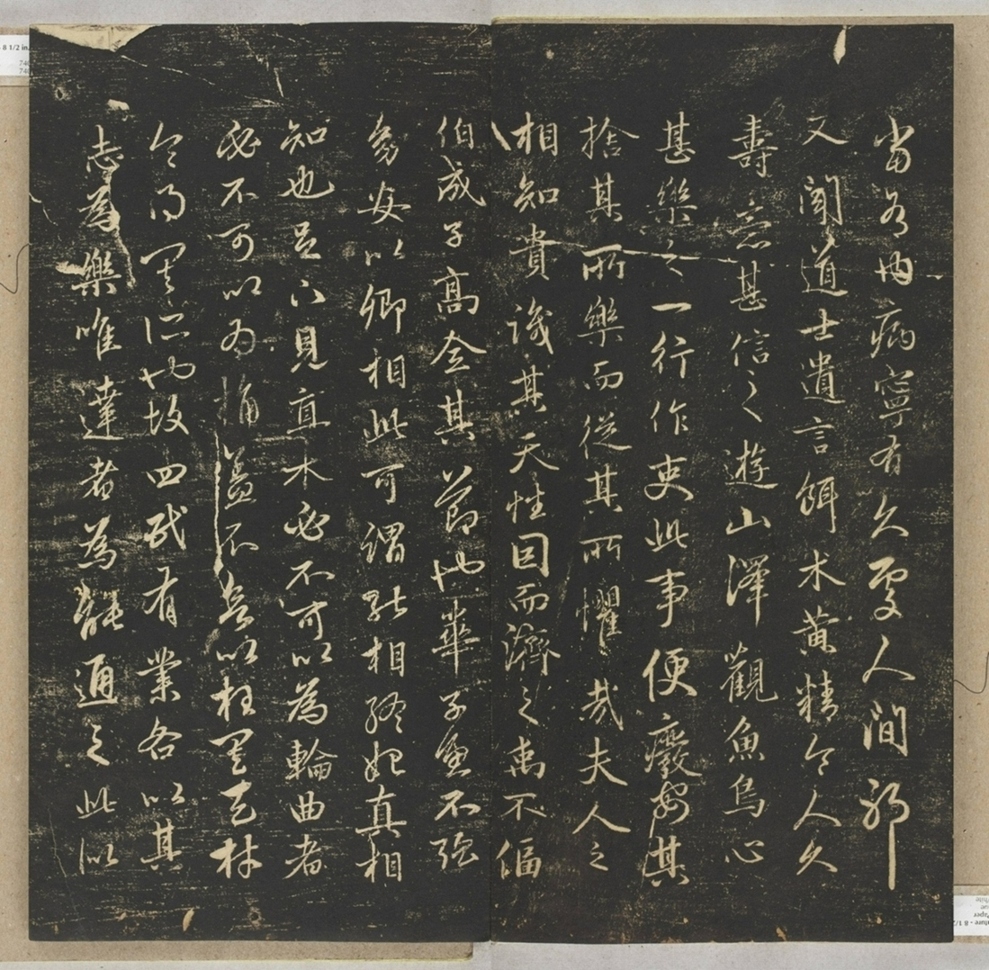 當有內病寧有久處人間邪
又聞道士遺言餌木黃精令人久
壽意甚信之遊山澤觀魚鳥心
甚樂之一行作吏此事便癈安其
捨其所樂而從其所懼哉夫人之
相知貴識其天性因而濟之禹不偪
伯成子高全其節也華子魚不強
幼安以卿相此可謂能相終始真相
知也足下見直木必不可以為輪曲者
必不可以為桷蓋不欲以枉其天材
令得其所也故四民有業各以其
志為樂唯達者為能通之此似